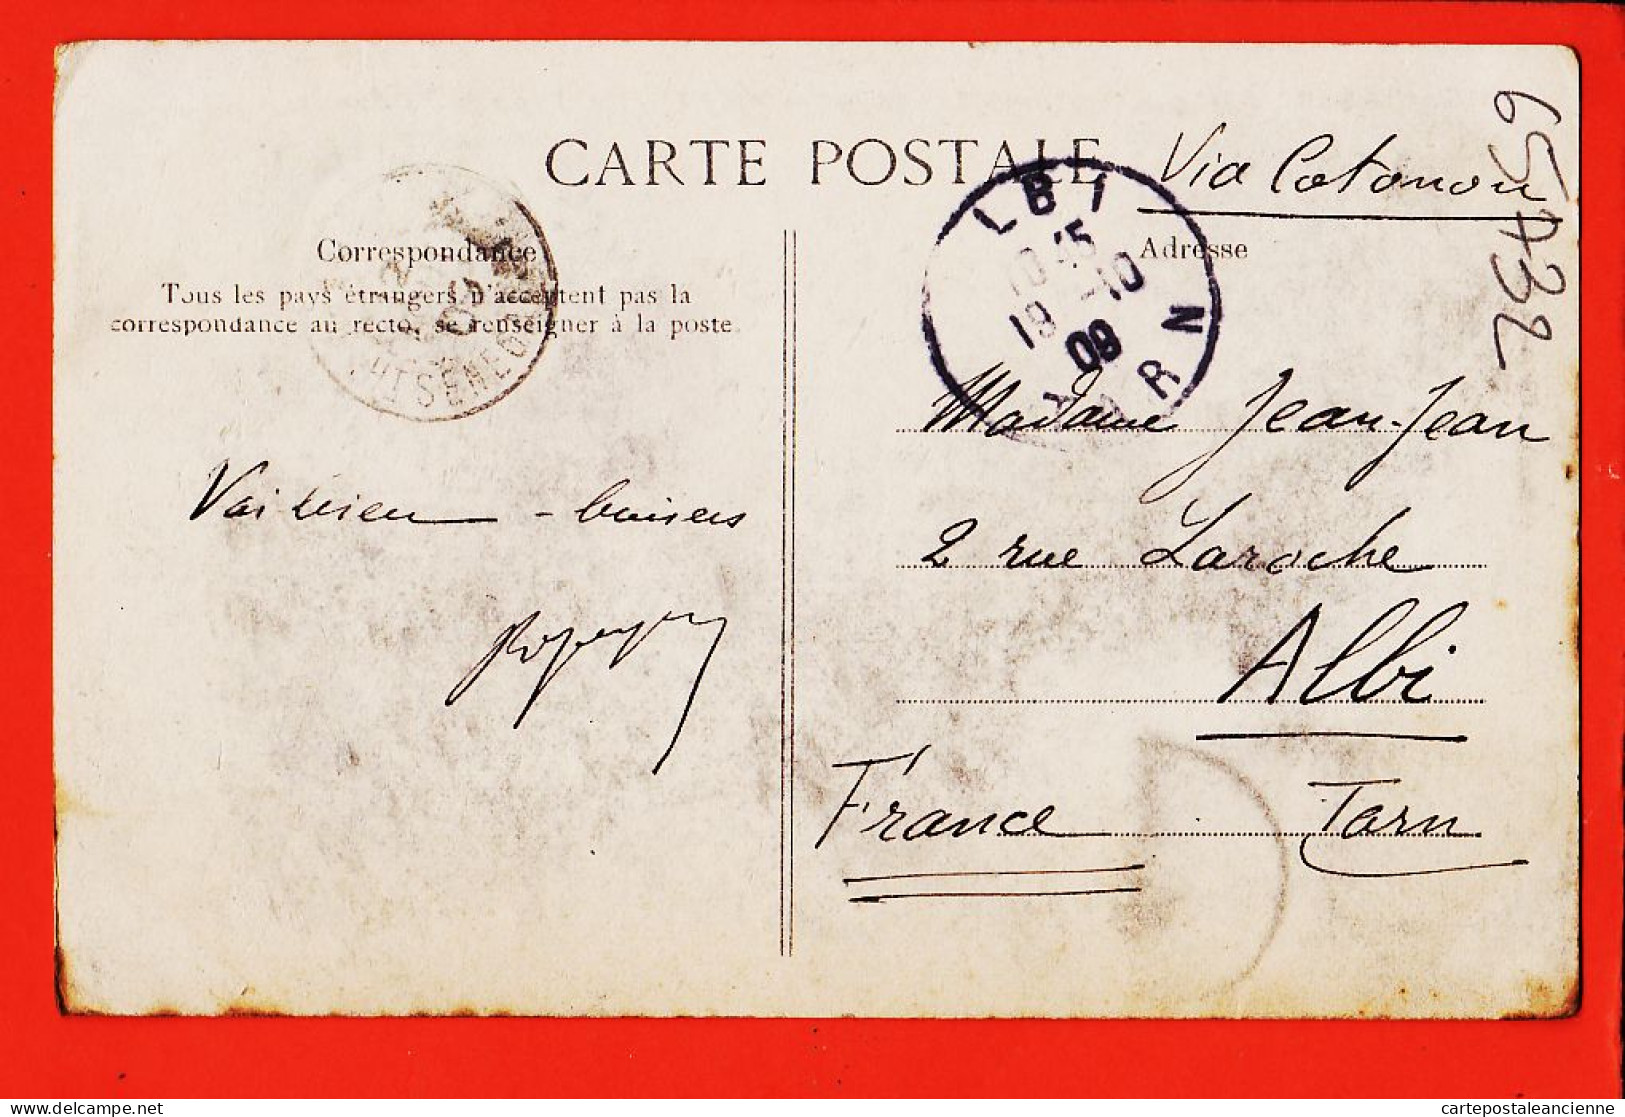 CARTE POSTALE
Via Cotonou
65432
Correspondance
Tous les pays étrangers n'acceptent pas la
correspondance au recto, se renseigner à la poste.
Adresse
LBI
10 15
19 -10
09
TARN
HT SENEG
09
Vai bien - baisers
Madame Jean-Jean
2 rue Laroche
Albi
France Tarn
delcampe.net
cartepostaleancienne